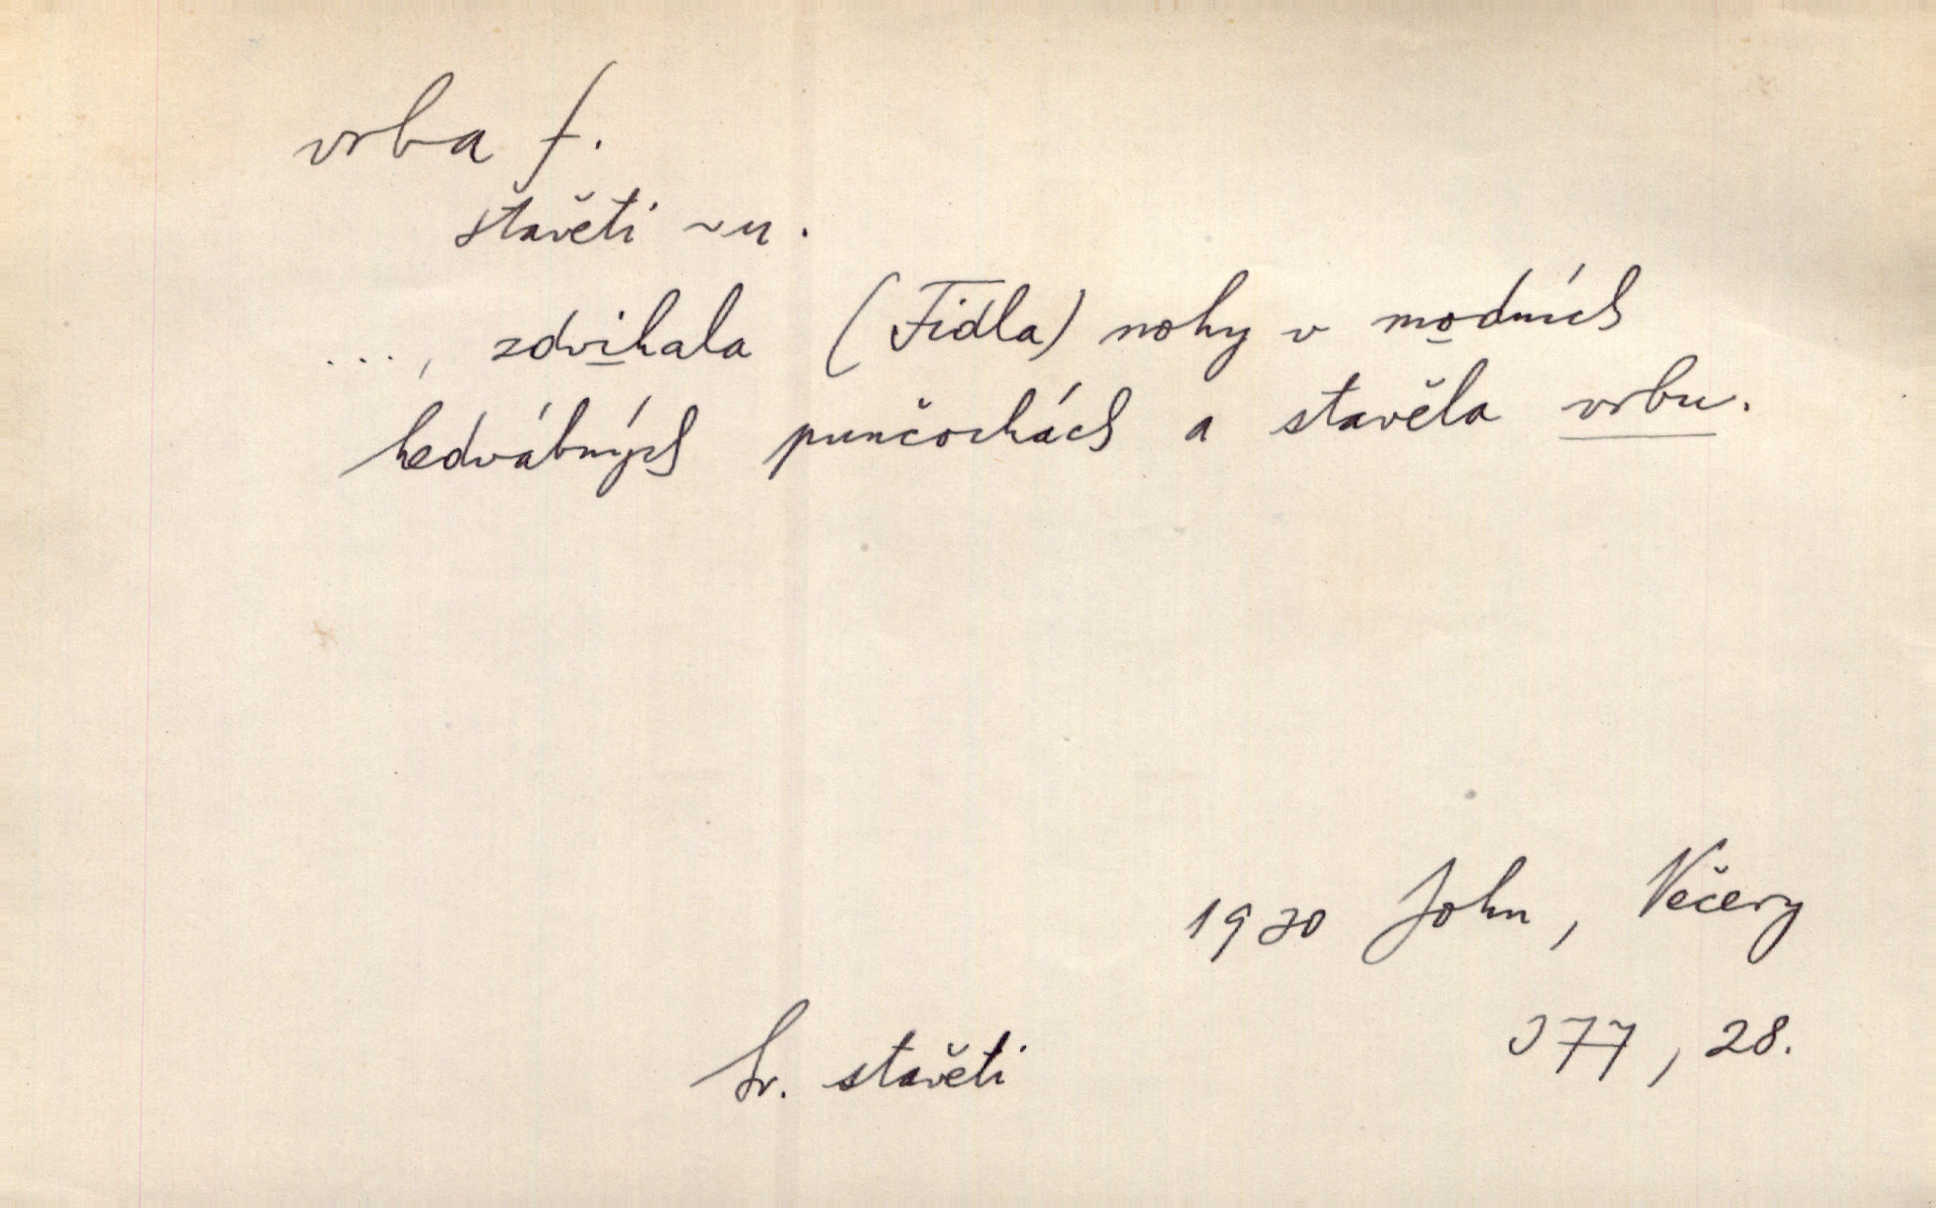 vrba f.
stavěti ~u.
..., zdvihala (Fidla) nohy v modních
hedvábných punčochách a stavěla vrbu.
1930 John, Večery
377, 28.
Sr. stavěti